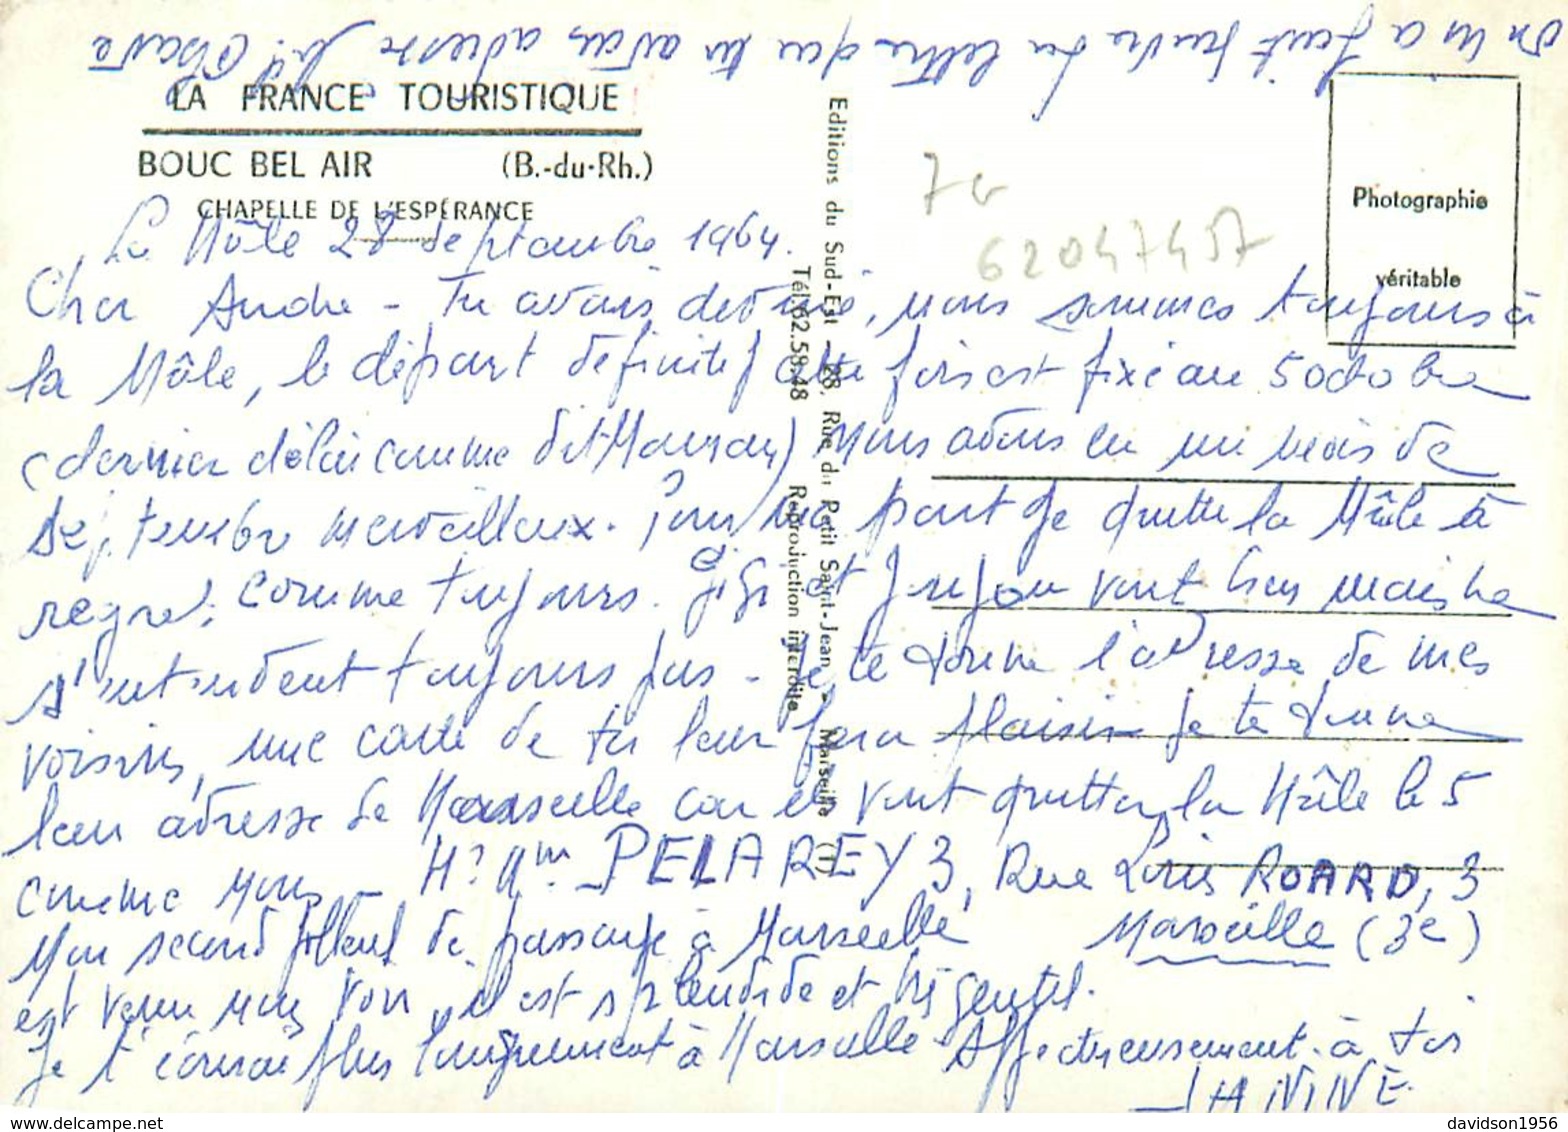 on m'a fait suivre la lettre que tu avais adressé
LA FRANCE TOURISTIQUE
BOUC BEL AIR (B.-du-Rh.)
CHAPELLE DE L'ESPÉRANCE
Editions du Sud-Est - 28, Rue du Petit Saint-Jean - Marseille (1)
Tél. 62.58.48 Reproduction interdite
Photographie
véritable
62047457
La Môle 28 septembre 1964.
Cher André - Tu avais deviné, nous sommes toujours à
la Môle, le départ définitif cette fois est fixé au 5 octobre
(dernier délai comme dit Maman) Nous avons eu un mois de
septembre merveilleux. Pour ma part je quitte la Môle à
regret, comme toujours. Gigi et Joujou vont bien mais ne
s'entendent toujours pas - Je te donne l'adresse de mes
voisins, une carte de toi leur fera plaisir je te donne
leur adresse de Marseille car ils vont quitter la Môle le 5
comme nous - Mr Mme PELAREY 3, Rue Louis ROARD, 3
Marseille (3e)
Mon second filleul de passage à Marseille
est venu nous voir, il est splendide et très gentil.
Je t'écrirai plus longuement à Marseille Affectueusement à toi
JANINE.
davidson1956